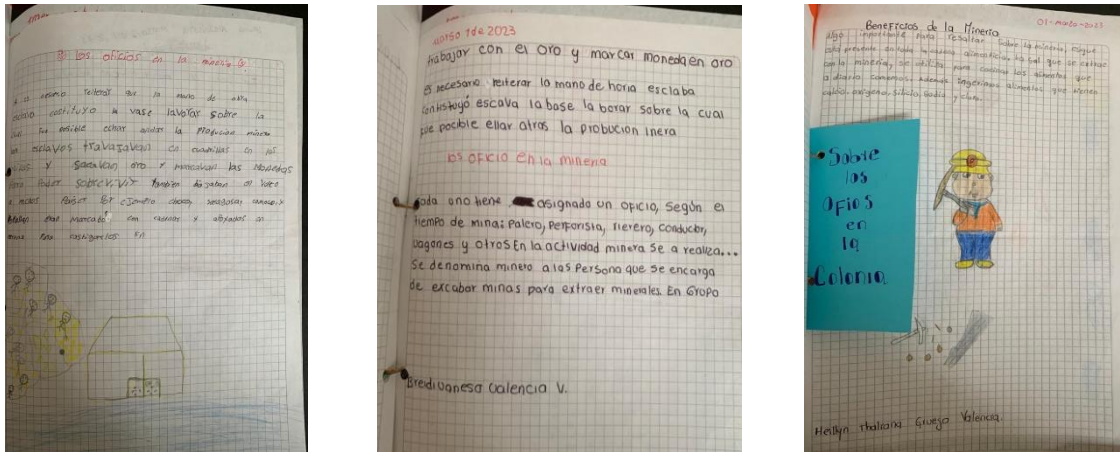 los oficios en la mineria
es necesario reiterar que la mano de obra
esclava costituyo la vase lavoral sobre la
cual fue posible echar andar la producion minera
los esclavos travajavan en cuadrillas en los
rios y sacavan oro y marcavan las monedas
para Poder sobrevivir tambien
por ejemplo
marcados con
para castigarlos En
marso 1 de 2023
trabajar con el oro y marcar moneda en oro
es necesario reiterar la mano de horia esclaba
contistuyó escava la base la borar sobre la cual
fue pocible ellar atros la probucion inera
los oficio en la mineria
cada uno tiene asignado un oficio, según el
tiempo de mina: palero, perforista, fierero, conductor,
vagones y otros En la actividad minera se a realiza...
Se denomina minero a las Persona que se encarga
de excabar minas para extraer minerales. En Grupo
Breidivanesa valencia V.
01-marzo-2023
Beneficios de la Mineria
algo importante para resaltar sobre la mineria, es que
esta presente en toda la cadena alimenticia, la sal que se extrae
con la mineria, se utiliza para cocinar los alimentos que
a diario comemos, además ingerimos alimentos que tienen
calcio, oxigeno, silicio, sodio y cloro.
Sobre
los
ofios
en
la
Colonia
Heillyn thaliana Grueso Valencia.